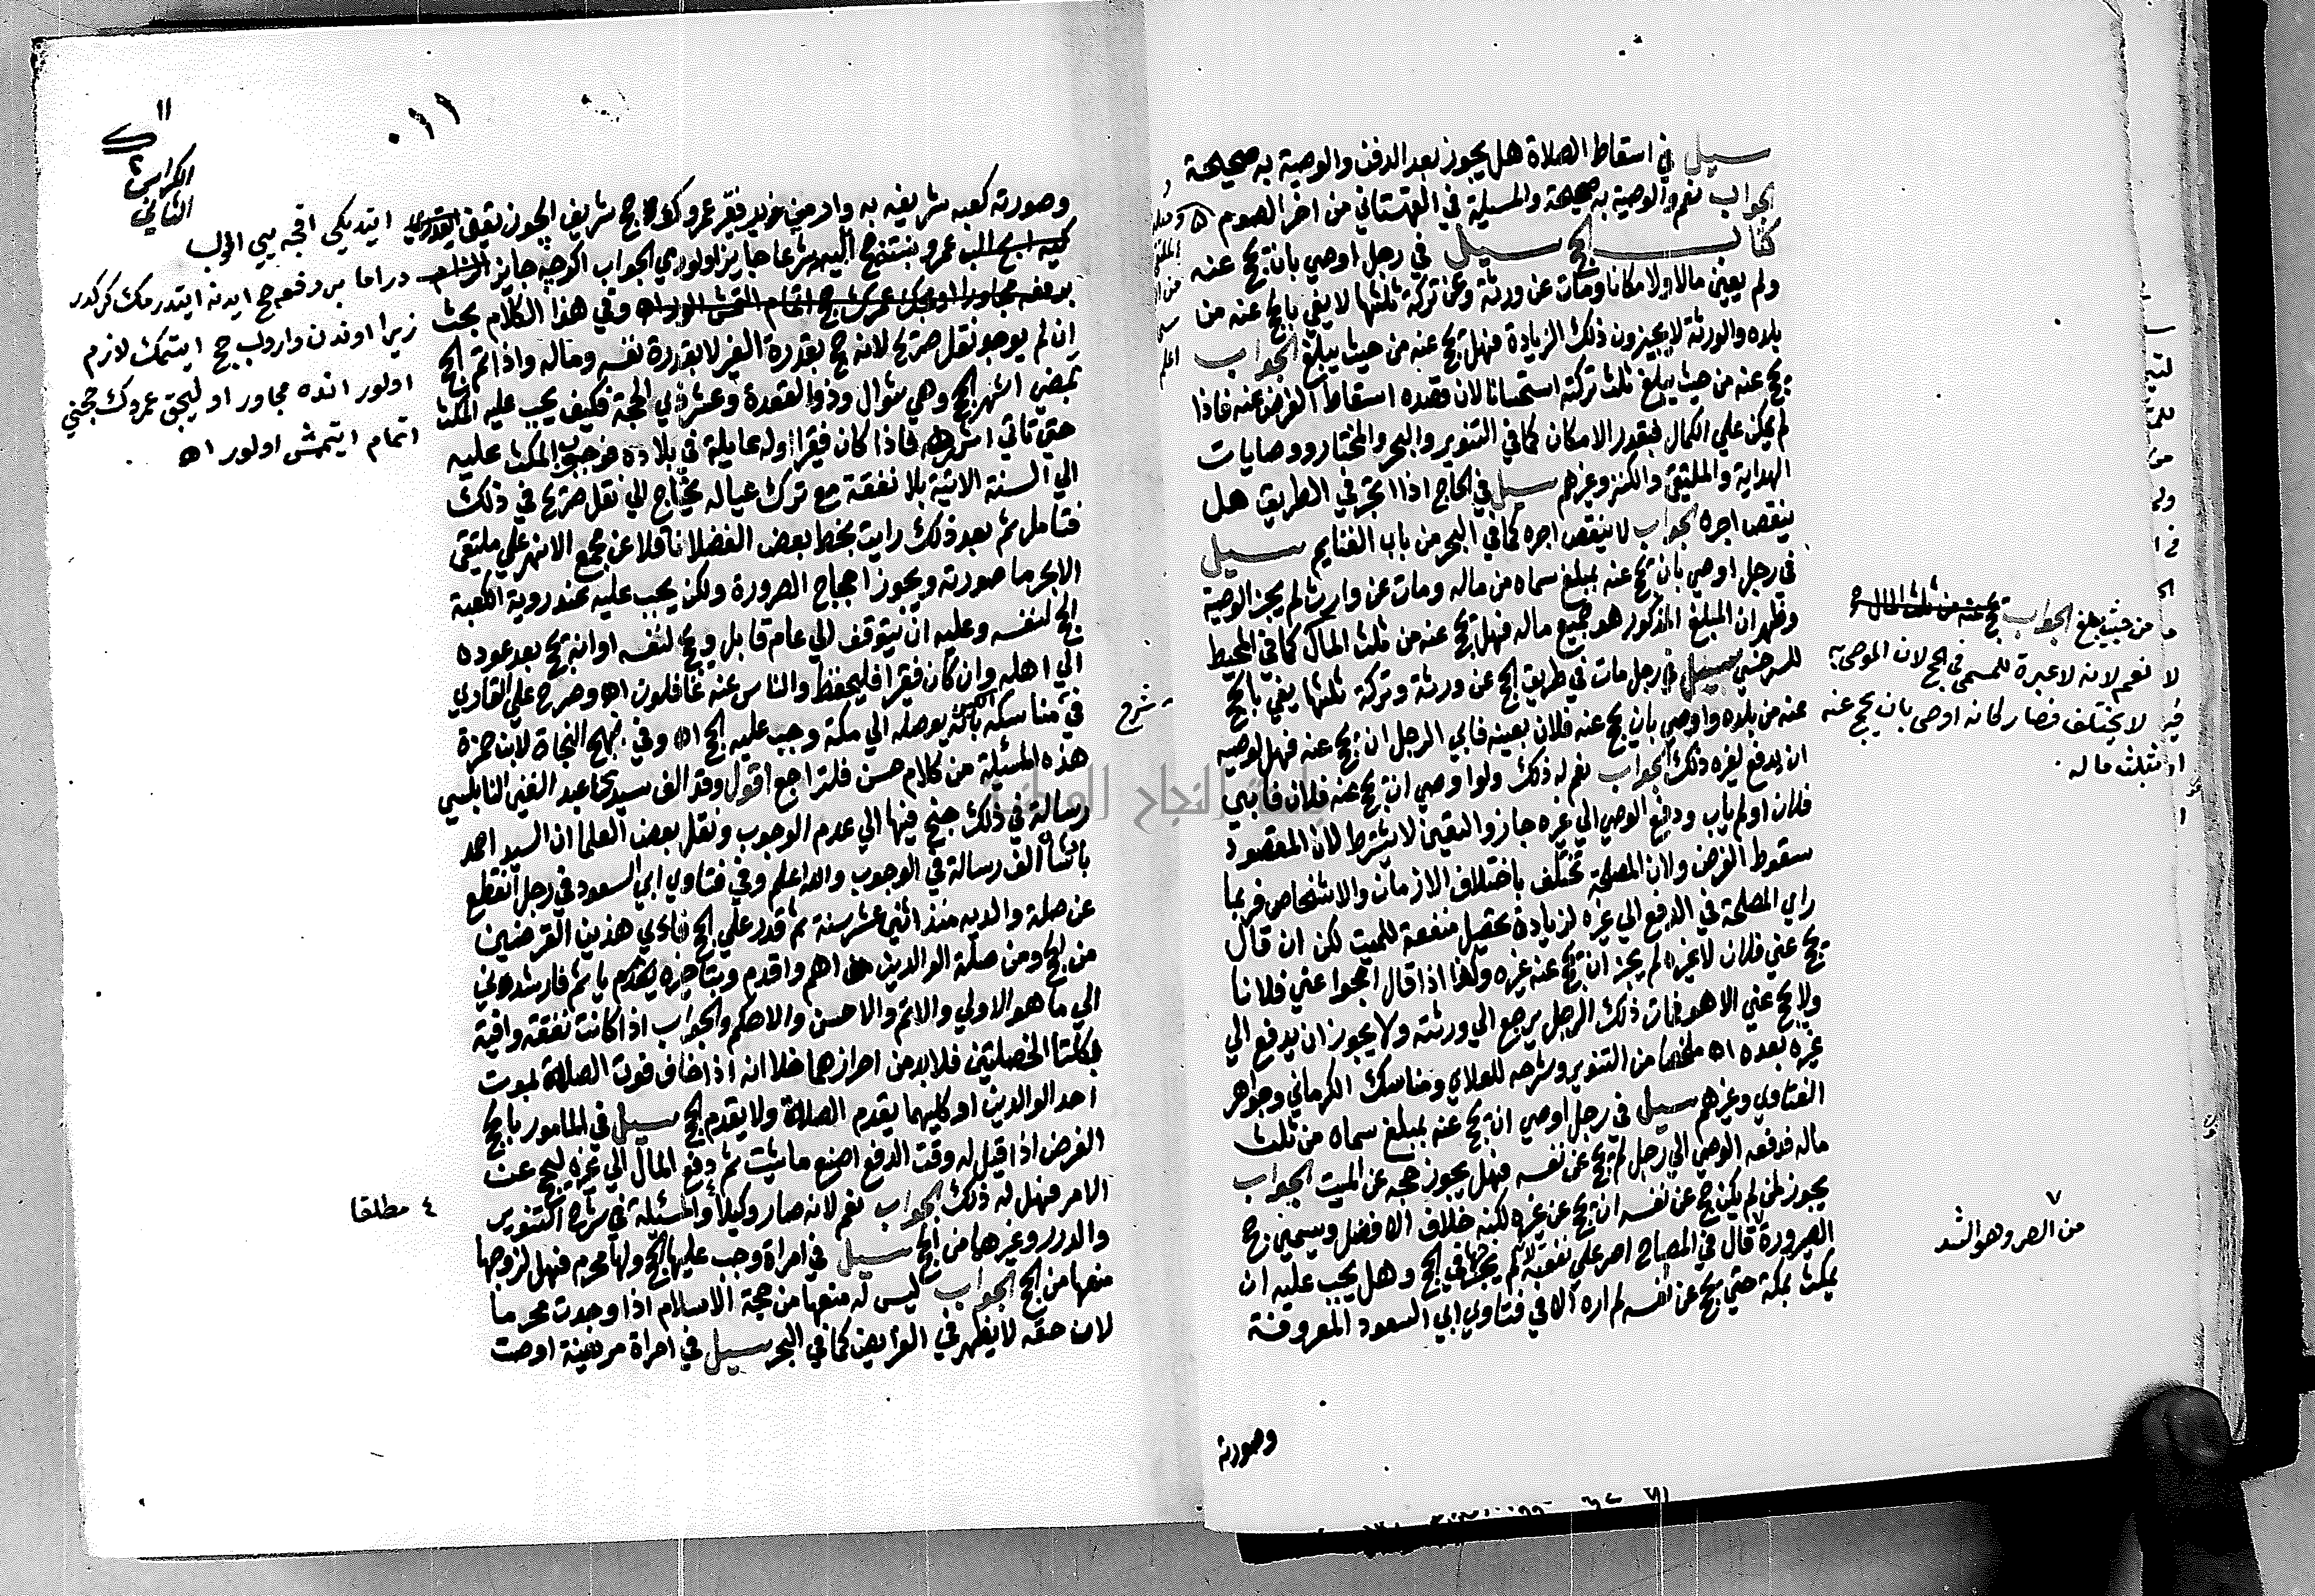 سيل في اسقاط الصلاة هل يجوز بعد الدفن والوصية به صحيحة
الجواب نعم والوصية به صحيحة والمسيلة في القهستاني من اخر الصوم
كتاب الحج سيل في رجل اوصي بان يحج عنه
ولم يعين مالا ولا مكانا ومات عن ورثة وعن تركة ثلثها لا يفي بالحج عنه من
بلده والورثة لا يجيزون ذلك الزيادة فهل يحج عنه من حيث يبلغ الجواب
يحج عنه من حيث يبلغ ثلث تركته استحسانا لان قصده اسقاط الفرض عنه فاذا
لم يمكن علي الكمال فبقدر الامكان كما في التنوير والبحر والمختار ووصايات
الهداية والملتقي والكنز وغيرهم سيل في الحاج اذا اتجر في الطريق هل
ينقص اجره الجواب لا ينقص اجره كما في البحر من باب الغنايم سيل
في رجل اوصي بان يحج عنه بمبلغ سماه من ماله ومات عن وارث لم يجز الوصية
وظهر ان المبلغ المذكور هو جميع ماله فهل يحج عنه من ثلث المال كما في المحيط
للسرخسي سيل في رجل مات في طريق الحج عن ورثة وتركة ثلثها يفي بالحج
عنه من بلده واوصي بان يحج عنه فلان بعينه فابي الرجل ان يحج عنه فهل لوصيه
ان يدفع لغيره ذلك الجواب نعم له ذلك ولو اوصي ان يحج عنه فلان فابي
فلان او لم ياب ودفع الوصي الي غيره جاز والتعين لا يشترط لان المقصود
سقوط الفرض ولان المصلحة تختلف باختلاف الازمان والاشخاص فربما
راي المصلحة في الدفع الي غيره لزيادة تحصيل منفعة للميت لكن ان قال
يحج عني فلان لا غيره لم يجز ان يحج عنه غيره وكذا اذا قال احجوا عني فلانا
ولا يحج عني الا هو فمات ذلك الرجل يرجع الي ورثته ولا يجوز ان يدفع الي
غيره بعده اه ملخصا من التنوير وشرحه للعلاي ومناسك الكرماني وجواهر
الفتاوي وغيرهم سيل في رجل اوصي ان يحج عنه بمبلغ سماه من ثلث
ماله فدفعه الوصي الي رجل لم يحج عن نفسه فهل يجوز حجه عن الميت الجواب
يجوز لمن لم يكن حج عن نفسه ان يحج عن غيره لكنه خلاف الافضل ويسمي حج
الصرورة قال في المصباح اصر علي نفقته لانه لم يخرجها في الحج وهل يجب عليه ان
يمكث بمكة حتي يحج عن نفسه لم اره الا في فتاوي ابي السعود المعروفة
وصورته
من حيث يبلغ الجواب يحج عنه من ثلث المال
نعم لانه لا عبرة للمسمي في الحج لان الموصي به
لا يختلف فصار كانه اوصي بان يحج عنه
بثلث ماله
٧
من الصر وهو الشد
٠١١
١١
الكراس
الثاني
وصورته كعبه شريفيه به وارمين زيد فقير عمرو
وفي هذا الكلام بحث
ان لم يوجد نقل صريح لانه حج بقدرة الغير لا بقدرة نفسه وماله واذا تم الحج
تمضي اشهر الحج وهي شوال وذو القعدة وعشر ذي الحجة فكيف يجب عليه المكث
حتي تاتي اشهره فاذا كان فقيرا وله عايلة في بلاده فوجوب المكث عليه
الي السنة الاتية بلا نفقة مع ترك عياله يحتاج الي نقل صريح في ذلك
فتامل ثم بعد ذلك رايت بخط بعض الفضلا ناقلا عن مجمع الانهر علي ملتقي
الابحر ما صورته ويجوز احجاج الصرورة ولكن يجب عليه عند روية الكعبة
الحج لنفسه وعليه ان يتوقف الي عام قابل ويحج لنفسه او ان يحج بعد عوده
الي اهله وان كان فقيرا فليحفظ والناس عنه غافلون اه وصرح علي القاري
في مناسكه بانه يوصله الي مكة وجب عليه الحج اه وفي نهج النجاة لابن حمزة
هذه المسئلة من كلام حسن فلتراجع اقول وقد الف سيدنا عبد الغني النابلسي
رسالة في ذلك جنح فيها الي عدم الوجوب ونقل بعض العلما ان السيد احمد
باشا الف رسالة في الوجوب والله اعلم وفي فتاوي ابي السعود في رجل انقطع
عن صلة والديه منذ اثني عشر سنة ثم قدر علي الحج فاي هذين الفرضين
من الحج ومن صلة الوالدين اهم واقدم وبتاخيره ياثم فارشدوني
الي ما هو الاولي والاتم والاحسن والاحكم والجواب اذا كانت نفقته وافية
بكلتا الخصلتين فلا بد من احرازهما خلا انه اذا خاف فوت الصلة بموت
احد الوالدين او كليهما يقدم الصلة ولا يقدم الحج سيل في المامور بالحج
الفرض اذا قيل له وقت الدفع اصنع ما شيت ثم دفع المال الي غيره ليحج عن
الامر فهل له ذلك الجواب نعم لانه صار وكيلا والمسئلة في شرح التنوير
والدرر وغيرهما من الحج سيل في امراة وجب عليها الحج ولها محرم فهل لزوجها
منعها من الحج الجواب ليس له منعها من حجة الاسلام اذا وجدت محرما
لان حقه لا يظهر في الفرايض كما في البحر سيل في امراة مريضة اوصت
شرح
مطلقا
زيرا اوندن واروب حج ايتمك لازم
اولور انده مجاور اوليجق عمروك حجني
اتمام ايتمش اولور اه
جامعة النجاح الوطنية